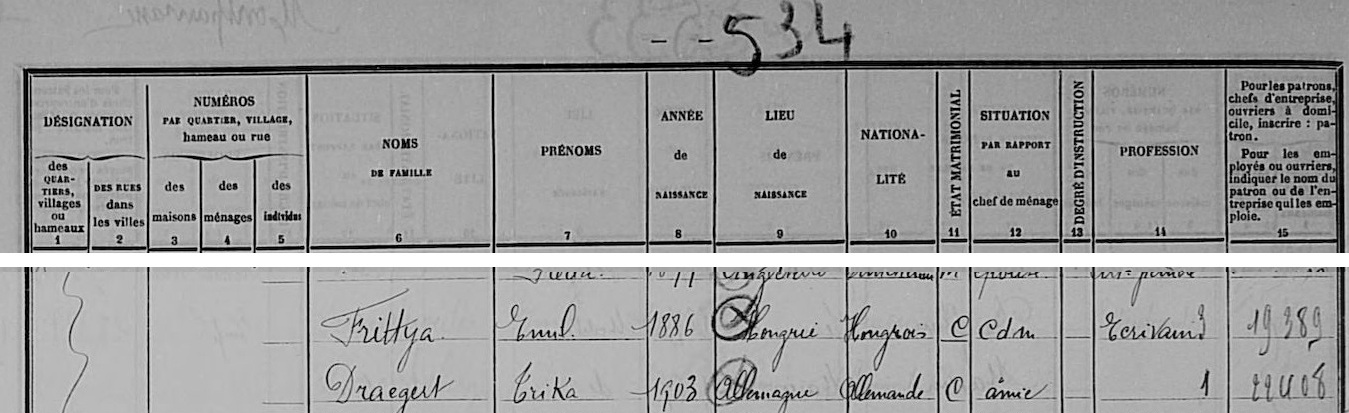 534
DÉSIGNATION
des QUARTIERS, villages ou hameaux
1
DES RUES dans les villes
2
NUMÉROS
PAR QUARTIER, VILLAGE,
hameau ou rue
des maisons
3
des ménages
4
des individus
5
NOMS
DE FAMILLE
6
PRÉNOMS
7
ANNÉE
de
NAISSANCE
8
LIEU
de
NAISSANCE
9
NATIONA-
LITÉ
10
ÉTAT MATRIMONIAL
11
SITUATION
PAR RAPPORT
au
chef de ménage
12
DEGRÉ D'INSTRUCTION
13
PROFESSION
14
Pour les patrons,
chefs d'entreprise,
ouvriers à domi-
cile, inscrire : pa-
tron.
Pour les em-
ployés ou ouvriers,
indiquer le nom du
patron ou de l'en-
treprise qui les em-
ploie.
15
Frittya Emil. 1886 Hongrie Hongrois C Cdm Ecrivain 3 19389
Draegert Erika 1903 Allemagne Allemande C âmie 1 22408